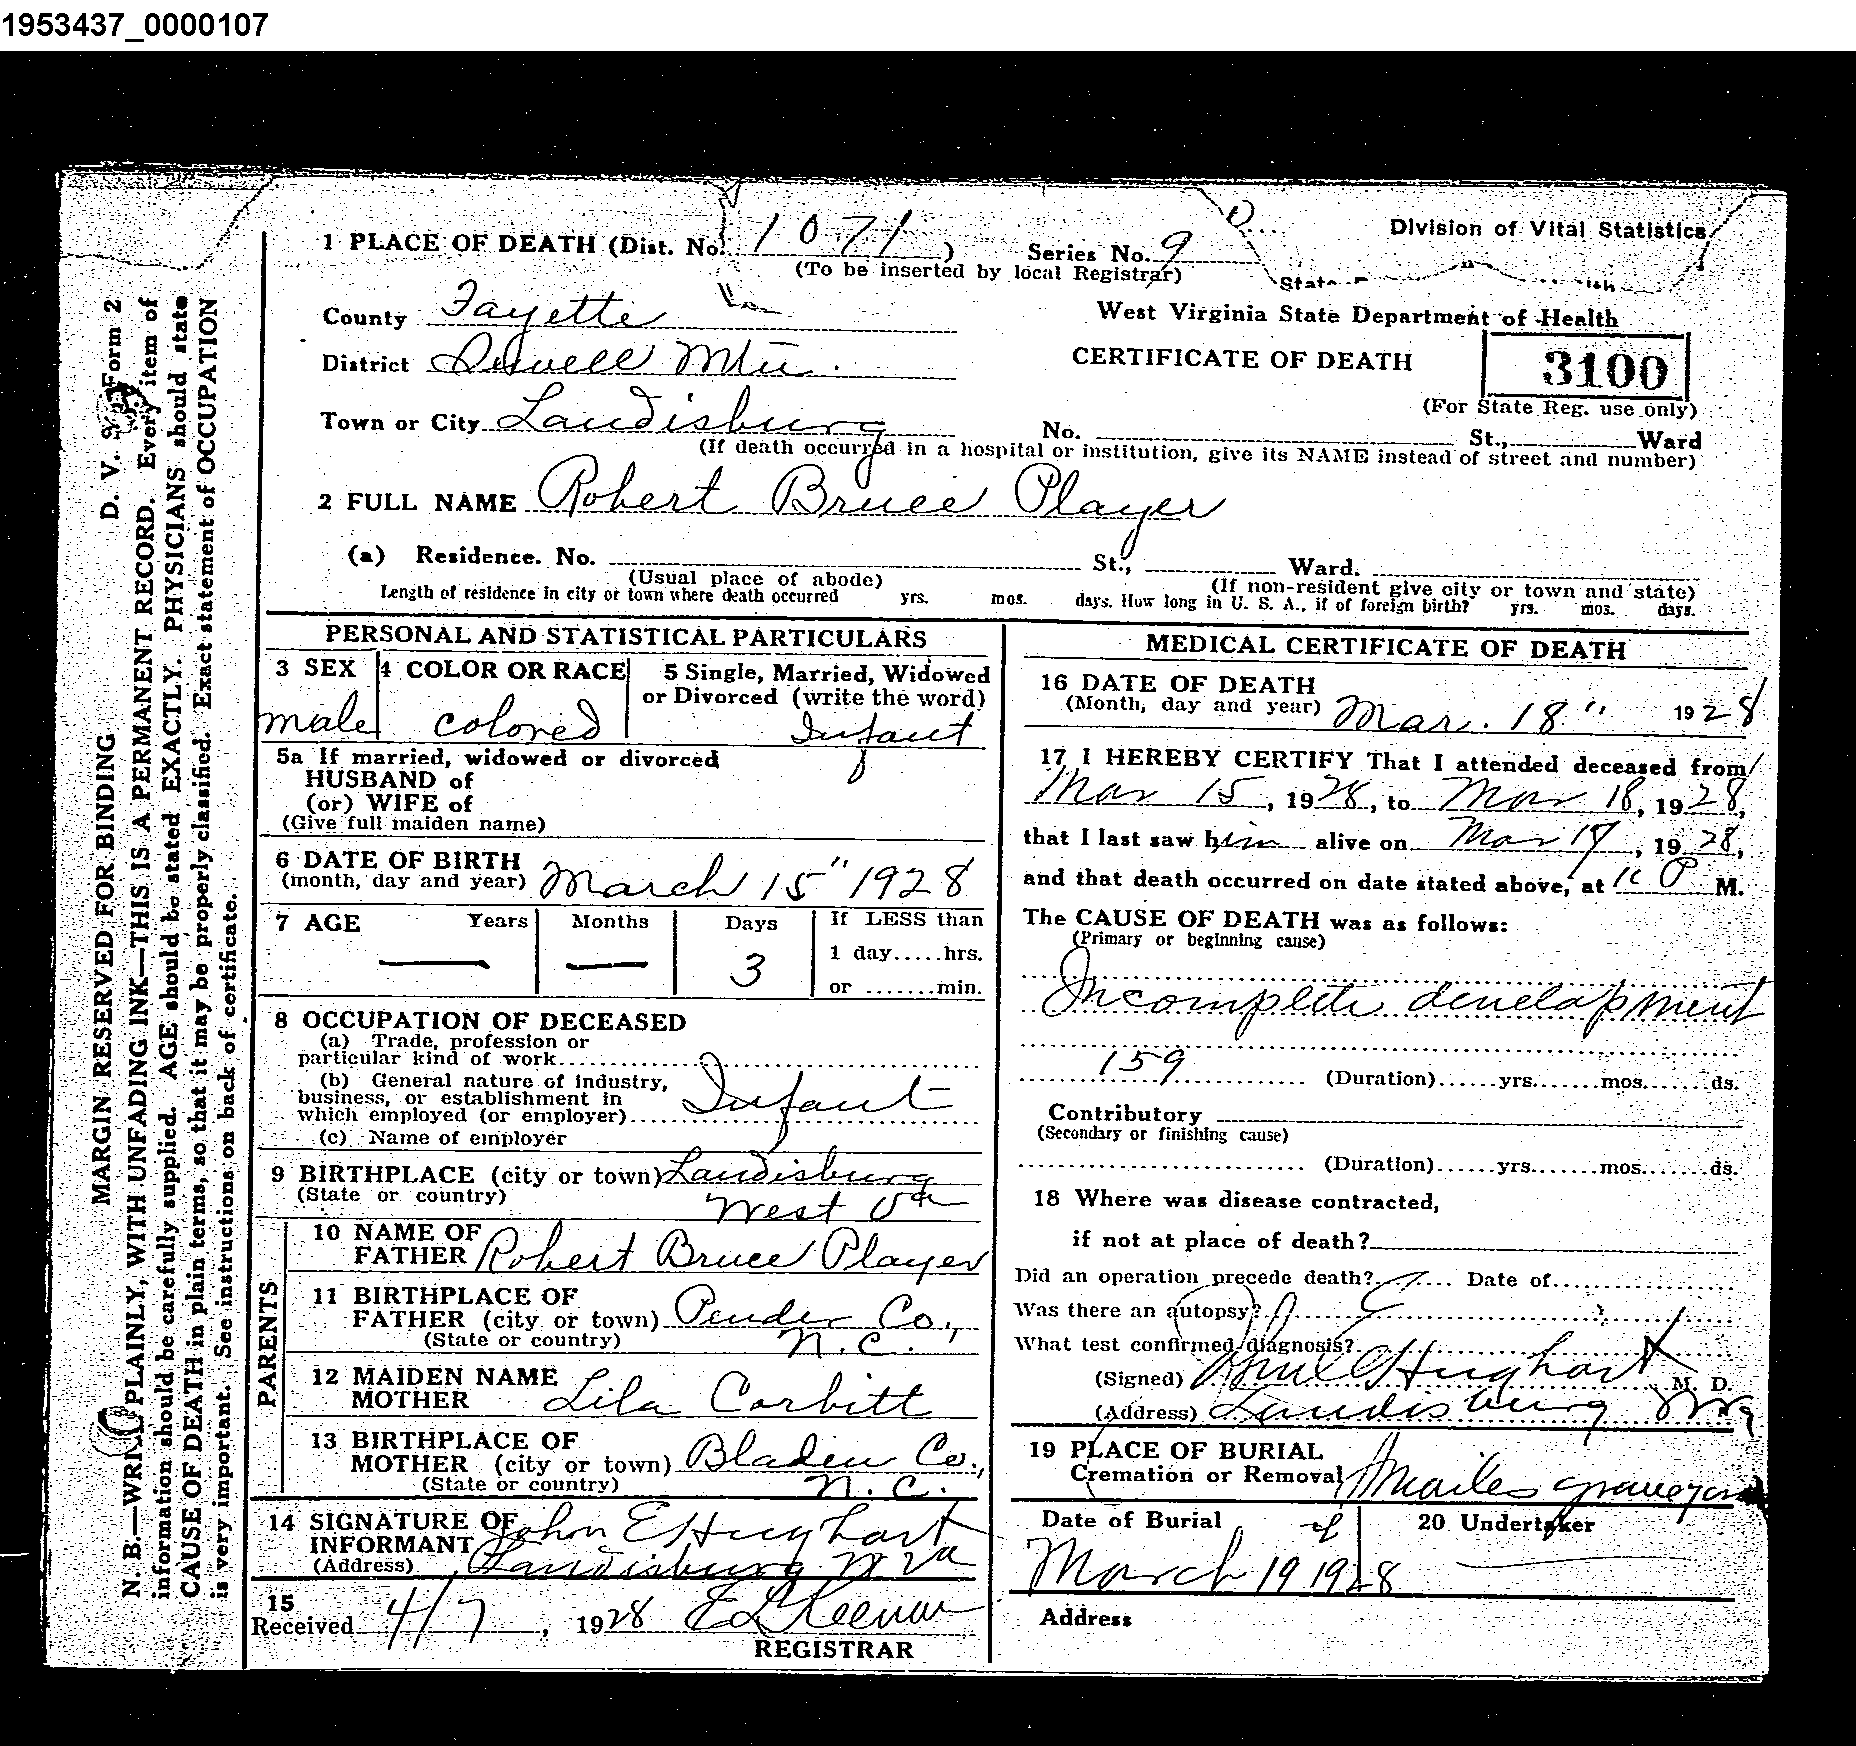 1953437_0000107
1 PLACE OF DEATH (Dist. No. 1071) Series No. 9
(To be inserted by local Registrar)
Division of Vital Statistics
County Fayette
West Virginia State Department of Health
District Sewell Mtn.
CERTIFICATE OF DEATH
3100
(For State Reg. use only)
Town or City Landisburg No. St., Ward
(If death occurred in a hospital or institution, give its NAME instead of street and number)
2 FULL NAME Robert Bruce Player
(a) Residence. No. St., Ward.
(Usual place of abode) (If non-resident give city or town and state)
Length of residence in city or town where death occurred yrs. mos. days. How long in U. S. A., if of foreign birth? yrs. mos. days.
PERSONAL AND STATISTICAL PARTICULARS
3 SEX 4 COLOR OR RACE 5 Single, Married, Widowed
or Divorced (write the word)
male colored Infant
5a If married, widowed or divorced
HUSBAND of
(or) WIFE of
(Give full maiden name)
6 DATE OF BIRTH
(month, day and year) March 15" 1928
7 AGE Years Months Days If LESS than
1 day.....hrs.
— — 3
or .......min.
8 OCCUPATION OF DECEASED
(a) Trade, profession or
particular kind of work
(b) General nature of industry,
business, or establishment in
which employed (or employer) Infant
(c) Name of employer
9 BIRTHPLACE (city or town) Landisburg
(State or country) West Va
PARENTS
10 NAME OF
FATHER Robert Bruce Player
11 BIRTHPLACE OF
FATHER (city or town) Pender Co.,
(State or country) N.C.
12 MAIDEN NAME
MOTHER Lila Corbitt
13 BIRTHPLACE OF
MOTHER (city or town) Bladen Co.,
(State or country) N.C.
14 SIGNATURE OF
INFORMANT John E Hughart
(Address) Landisburg W Va
15
Received 4/7, 1928 E L Keenan
REGISTRAR
MEDICAL CERTIFICATE OF DEATH
16 DATE OF DEATH
(Month, day and year) Mar. 18" 1928
17 I HEREBY CERTIFY That I attended deceased from
Mar 15, 1928, to Mar 18, 1928,
that I last saw him alive on Mar 17, 1928,
and that death occurred on date stated above, at P M.
The CAUSE OF DEATH was as follows:
(Primary or beginning cause)
Incomplete development
159
(Duration)......yrs.......mos.......ds.
Contributory
(Secondary or finishing cause)
(Duration)......yrs.......mos.......ds.
18 Where was disease contracted,
if not at place of death?
Did an operation precede death? Date of
Was there an autopsy?
What test confirmed diagnosis?
(Signed) Hughart M. D.
(Address) Landisburg WVa
19 PLACE OF BURIAL
Cremation or Removal graveyard
Date of Burial 20 Undertaker
March 19 1928
Address
MARGIN RESERVED FOR BINDING D. V. S. Form 2
N. B.—WRITE PLAINLY, WITH UNFADING INK—THIS IS A PERMANENT RECORD. Every item of
information should be carefully supplied. AGE should be stated EXACTLY. PHYSICIANS should state
CAUSE OF DEATH in plain terms, so that it may be properly classified. Exact statement of OCCUPATION
is very important. See instructions on back of certificate.